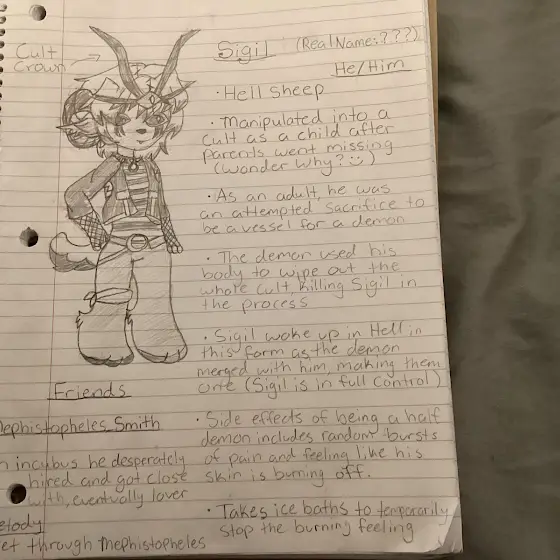 Cult
Crown
Sigil (Real Name:???)
He/Him
• Hell sheep
• Manipulated into a
cult as a child after
parents went missing
(wonder why? :))
• As an adult, he was
an attempted sacrifice to
be a vessel for a demon
• The demon used his
body to wipe out the
whole cult, killing Sigil in
the process
• Sigil woke up in Hell in
this form as the demon
merged with him, making them
one (Sigil is in full control)
• Side effects of being a half
demon includes random bursts
of pain and feeling like his
skin is burning off.
• Takes ice baths to temporarily
stop the burning feeling
Friends
Mephistopheles Smith
incubus he desperately
hired and got close
with, eventually lover
through Mephistopheles